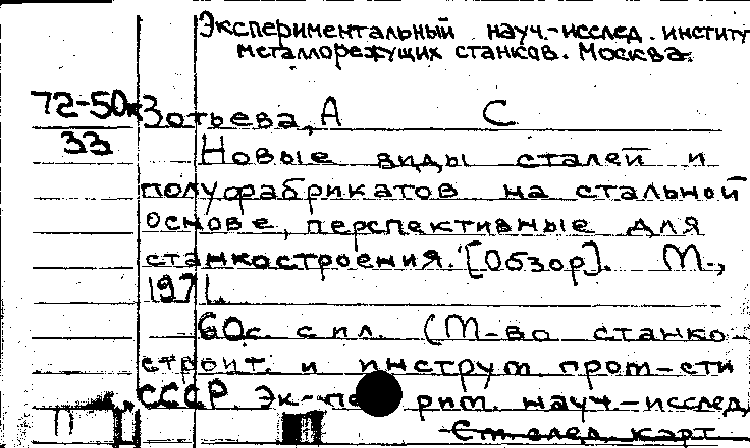 Экспериментальный науч.-исслед. институ
металлорежущих станков. Москва.
72-50к
33
Зотьева, А С
Новые виды сталей и
полуфабрикатов на стальной
основе, перспективные для
станкостроения. [Обзор]. М.,
1971.
60с. с ил. (М-во станко-
строит. и инструм. пром-сти
СССР. Эк- рим. науч.-исслед.
См. след. карт.